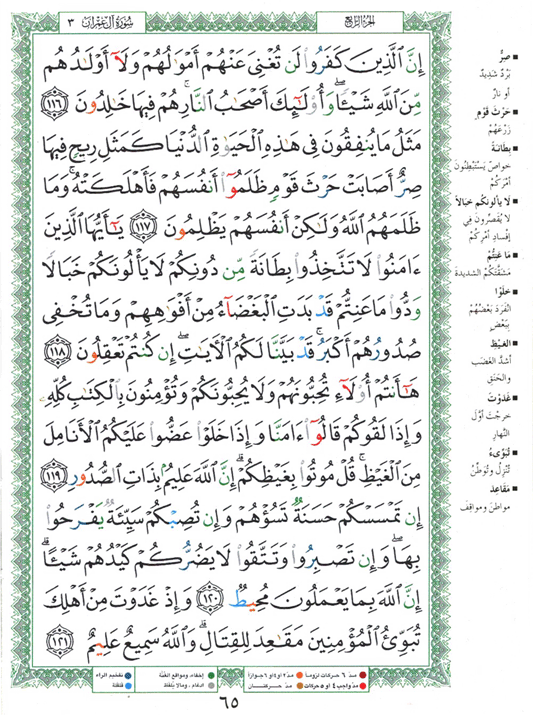 سُورَةُ آلِ عِمْرَان ٣
الجزء الرابع
إِنَّ ٱلَّذِينَ كَفَرُوا۟ لَن تُغْنِىَ عَنْهُمْ أَمْوَٰلُهُمْ وَلَآ أَوْلَٰدُهُم
مِّنَ ٱللَّهِ شَيْـًٔا ۖ وَأُو۟لَٰٓئِكَ أَصْحَٰبُ ٱلنَّارِ ۚ هُمْ فِيهَا خَٰلِدُونَ ١١٦
مَثَلُ مَا يُنفِقُونَ فِى هَٰذِهِ ٱلْحَيَوٰةِ ٱلدُّنْيَا كَمَثَلِ رِيحٍ فِيهَا
صِرٌّ أَصَابَتْ حَرْثَ قَوْمٍ ظَلَمُوٓا۟ أَنفُسَهُمْ فَأَهْلَكَتْهُ ۚ وَمَا
ظَلَمَهُمُ ٱللَّهُ وَلَٰكِنْ أَنفُسَهُمْ يَظْلِمُونَ ١١٧ يَٰٓأَيُّهَا ٱلَّذِينَ
ءَامَنُوا۟ لَا تَتَّخِذُوا۟ بِطَانَةً مِّن دُونِكُمْ لَا يَأْلُونَكُمْ خَبَالًا
وَدُّوا۟ مَا عَنِتُّمْ قَدْ بَدَتِ ٱلْبَغْضَآءُ مِنْ أَفْوَٰهِهِمْ وَمَا تُخْفِى
صُدُورُهُمْ أَكْبَرُ ۚ قَدْ بَيَّنَّا لَكُمُ ٱلْءَايَٰتِ ۖ إِن كُنتُمْ تَعْقِلُونَ ١١٨
هَٰٓأَنتُمْ أُو۟لَآءِ تُحِبُّونَهُمْ وَلَا يُحِبُّونَكُمْ وَتُؤْمِنُونَ بِٱلْكِتَٰبِ كُلِّهِۦ
وَإِذَا لَقُوكُمْ قَالُوٓا۟ ءَامَنَّا وَإِذَا خَلَوْا۟ عَضُّوا۟ عَلَيْكُمُ ٱلْأَنَامِلَ
مِنَ ٱلْغَيْظِ ۚ قُلْ مُوتُوا۟ بِغَيْظِكُمْ ۗ إِنَّ ٱللَّهَ عَلِيمٌۢ بِذَاتِ ٱلصُّدُورِ ١١٩
إِن تَمْسَسْكُمْ حَسَنَةٌ تَسُؤْهُمْ وَإِن تُصِبْكُمْ سَيِّئَةٌ يَفْرَحُوا۟
بِهَا ۖ وَإِن تَصْبِرُوا۟ وَتَتَّقُوا۟ لَا يَضُرُّكُمْ كَيْدُهُمْ شَيْـًٔا ۗ
إِنَّ ٱللَّهَ بِمَا يَعْمَلُونَ مُحِيطٌ ١٢٠ وَإِذْ غَدَوْتَ مِنْ أَهْلِكَ
تُبَوِّئُ ٱلْمُؤْمِنِينَ مَقَٰعِدَ لِلْقِتَالِ ۗ وَٱللَّهُ سَمِيعٌ عَلِيمٌ ١٢١
▪ صِرٌّ
بَرْدٌ شَدِيدٌ
أو نارٌ
▪ حَرْثَ قَوْمٍ
زَرْعَهُمْ
▪ بِطَانَةً
خواصَّ يَسْتَبْطِنُونَ
أمْرَكُمْ
▪ لا يألونكم خَبَالاً
لا يُقصِّرونَ في
إفْسَادِ أمْرِكُمْ
▪ مَا عَنِتُّمْ
مَشَقَّتَكُمُ الشديدةَ
▪ خَلَوْا
انْفَرَدَ بَعْضُهُمْ
بِبَعْضٍ
▪ الغَيْظِ
أشدِّ الغَضَبِ
والحَنَقِ
▪ غَدَوْتَ
خرجْتَ أوَّلَ
النَّهارِ
▪ تُبَوِّىءُ
تُنْزِلُ وتُوَطِّنُ
▪ مَقَاعِدَ
مواطنَ ومواقِفَ
مدّ ٦ حركات لزوماً
مدّ ٢ أو ٤ أو ٦ جوازاً
إخفاء، ومواقع الغُنَّة
تفخيم الراء
مدّ واجب ٤ أو ٥ حركات
مدّ حركتان
إدغام، ومالا يُلفَظ
قلقلة
٦٥